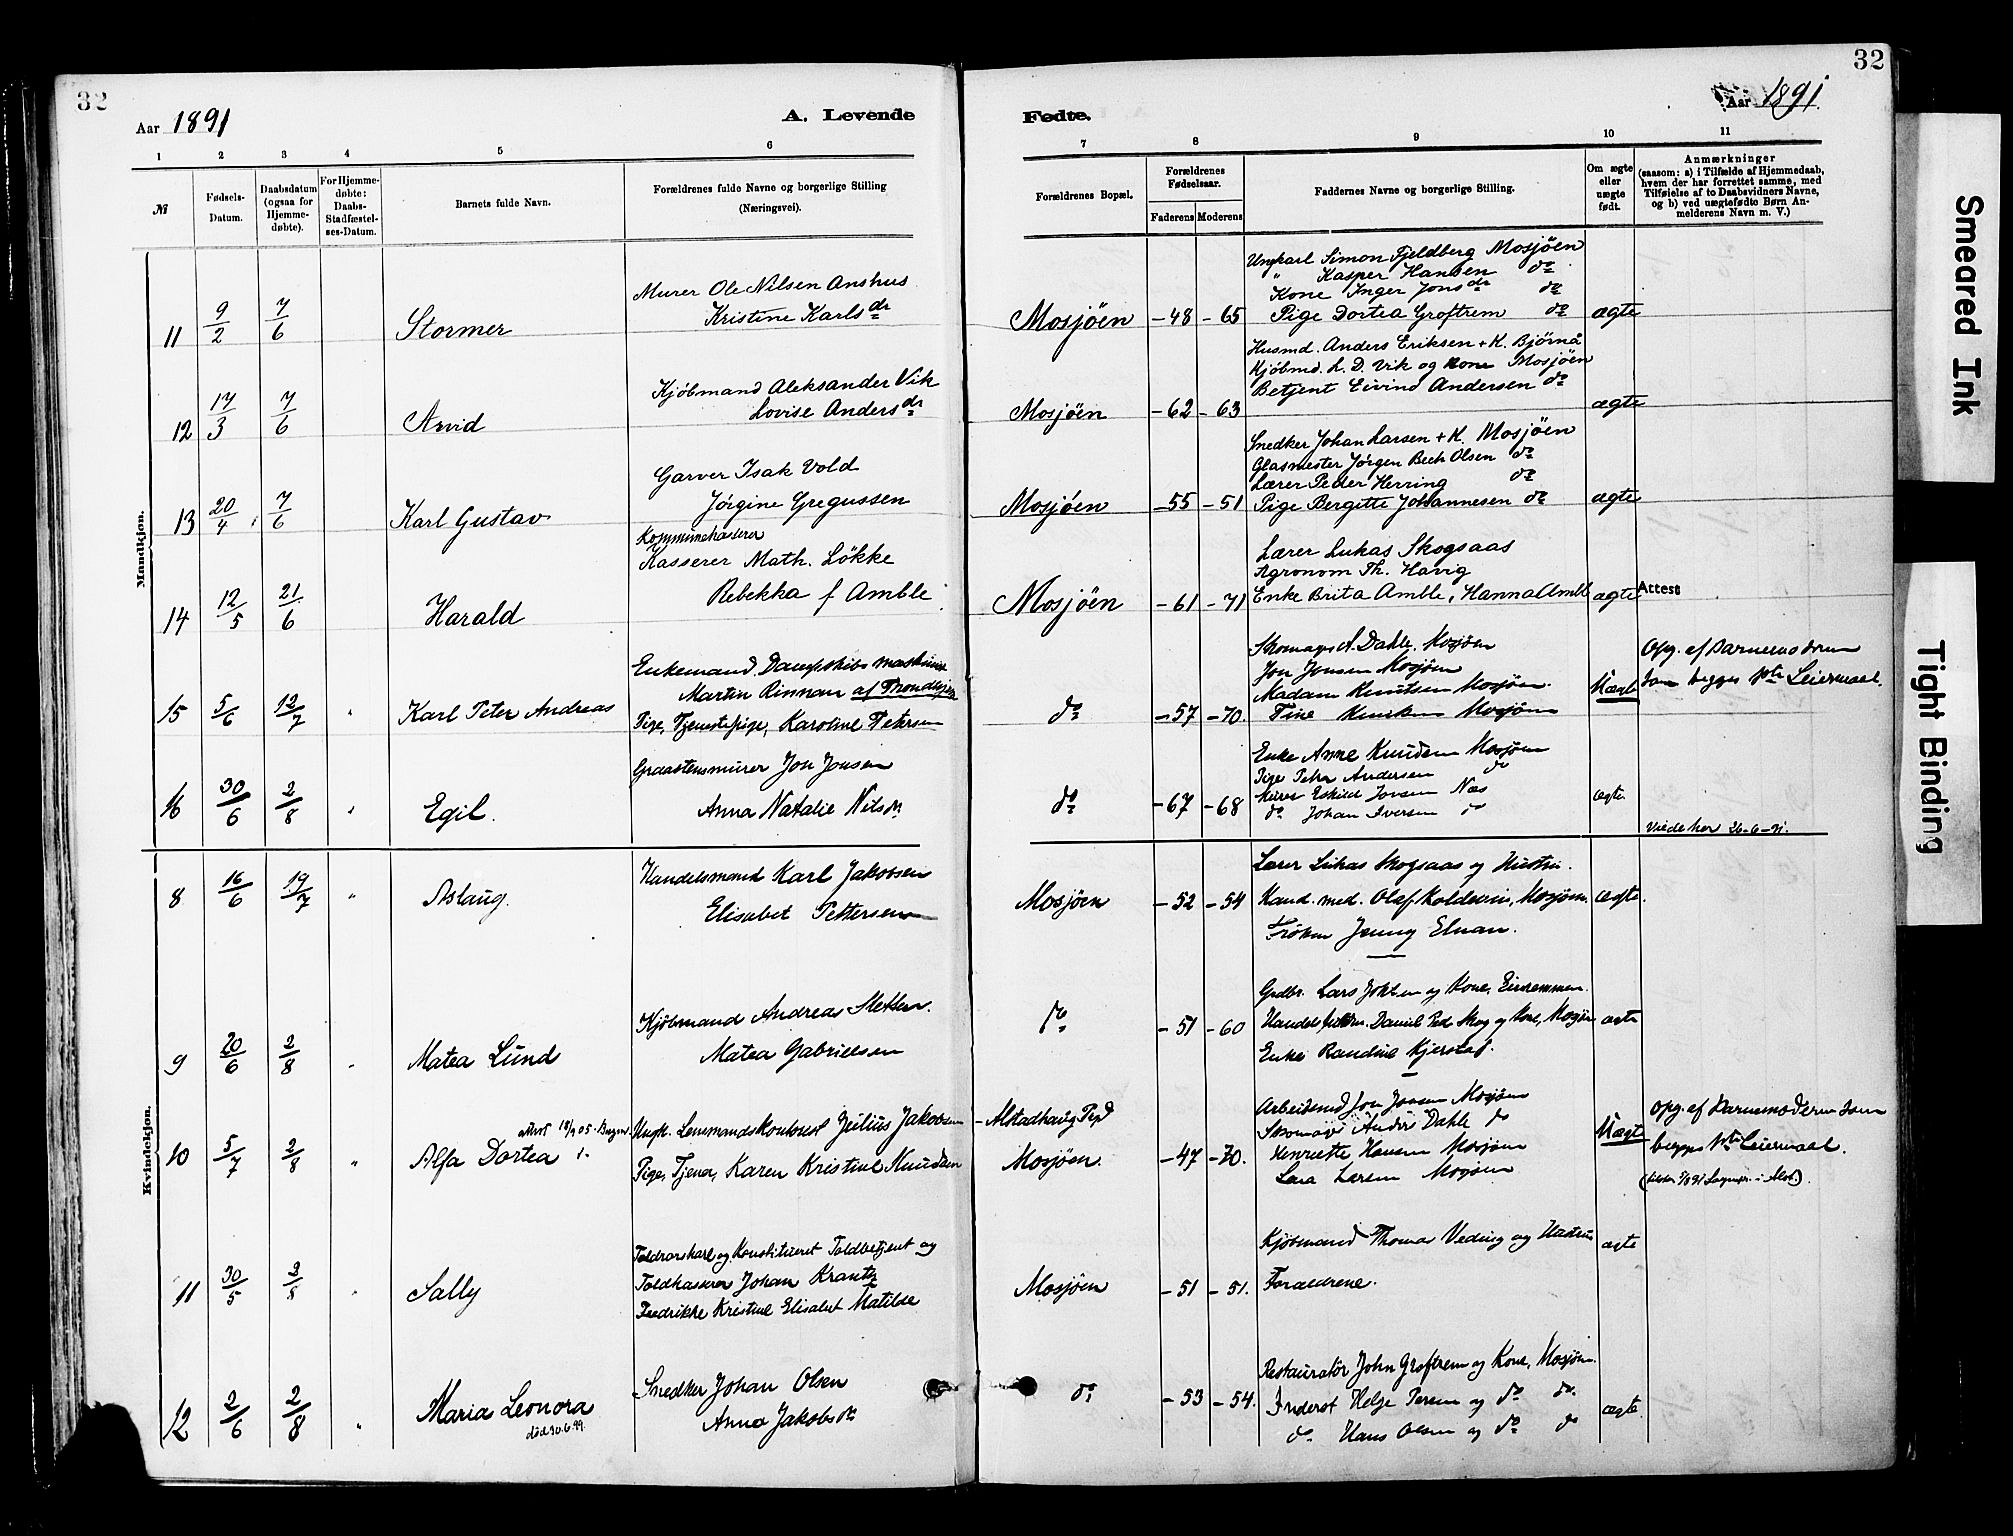 32
Aar 1891
A. Levende
1 2 3 4 5 6
№ Fødsels-Datum. Daabsdatum (ogsaa for Hjemme-døbte). For Hjemme-døbte: Daabs-Stadfæstel-ses-Datum. Barnets fulde Navn. Forældrenes fulde Navne og borgerlige Stilling (Næringsvei).
Mandkjøn.
Murer Ole Nilsen Anshus
11 9/2 7/6 Stormer Kristine Karlsdr
Kjöbmand Aleksander Vik
12 17/3 7/6 Arvid Lovise Andersdr
Garver Isak Vold
13 20/4 7/6 Karl Gustav Jörgine Gregussen
Kommunekasserer
Kasserer Math. Lökke
14 12/5 21/6 Harald Rebekka f Amble
Enkemand, Dampskibs maskinist
Martin Rinnan af Trondhjem
15 5/6 12/7 " Karl Peter Andreas Pige, Tjenestepige, Karoline Petersen
Graastensmurer Jon Jonsen
16 30/6 2/8 " Egil. Anna Natalie Nilsdr
Kvindekjøn.
Handelsmand Karl Jakobsen
8 16/6 19/7 " Aslaug. Elisabet Pettersen
Kjöbmand Andreas
9 20/6 2/8 " Matea Lund Matea Gabrielsen
Ungk. Lensmandskontorist Julius Jakobsen
10 5/7 2/8 " Alfa Dortea Pige, Tjener, Karen Kristine Knudsen
Toldrorskarl og Konstitueret Toldbetjent og
Toldkasserer Johan Krantz
11 30/5 2/8 " Sally Fredrikke Kristine Elisabet Matilde
Snedker Johan Olsen
12 2/6 2/8 " Maria Leonora Anna Jakobsdr
död 30.6.99.
32
Fødte.
Aar 1891.
7 8 9 10 11
Forældrenes Bopæl. Forældrenes Fødselsaar. Faderens Moderens Faddernes Navne og borgerlige Stilling. Om ægte eller uægte født. Anmærkninger (saasom: a) i Tilfælde af Hjemmedaab, hvem der har forrettet samme, med Tilføielse af to Daabsvidners Navne, og b) ved uægtefødte Børn Anmelderens Navn m. V.)
Ungkarl Simon Fjeldberg Mosjöen
" Kasper Hansen do
Kone Inger Jonsdr do
Mosjöen -48 -65 Pige Dortea Groftrem do ægte
Husmd. Anders Eriksen + K. Bjørnå
Kjöbmd. L. D. Vik og Kone Mosjöen
Betjent Eivind Andersen do
Mosjöen -62 -63 ægte
Snedker Johan Larsen + K. Mosjöen
Glasmester Jörgen Bech Olsen do
Lærer Peder Herring do
Mosjöen -55 -51 Pige Bergitte Johannesen do ægte
Lærer Lukas Skogsaas
Agronom Th. Havig
Mosjöen -61 -71 Enke Brita Amble, Hanna Amble ægte Attest
Skomager A. Dahle, Mosjöen
Jon Jonsen Mosjöen
Madam Knutsen Mosjöen.
do -57 -70. Tine Mosjöen Uægte Opg. af Barnemoderen som begges 1ste Leiermaal.
Enke Anne Knudsen Mosjöen
Pige Petra Andersen do
Murer Eskild Jonsen Næs
do -67 -68 do Johan Iversen do ægte
Viede her 26-6-91.
Lærer Lukas Skogsaas og Hustru.
Mosjöen -52 -54 Kand. med. Olaf Koldevin, Mosjöen. ægte.
Fröken Jenny Elnan.
Grdbr. Lars og Kone,
do -51 -60 Daniel Ped. Skog og Kone, Mosjöen ægte
Enke Randine Kjerstad.
Alstadhaug Pgd
Mosjöen. -47 -70.
Arbeidsmd Jon Jonsen Mosjöen
Skomager Andr. Dahle do
Henriette Hansen Mosjöen
Lena Larsen Mosjöen
Uægte Opg. af Barnemoderen som
begges 1ste Leiermaal.
Kjöbmand Thomas Veding og Hustru ægte
Mosjöen -51 -51. Forældrene.
Restauratör John Groftrem og Kone, Mosjöen.
do -53 -54. Inderst Helge Persen og do do. ægte.
do Hans Olsen og do do
Smeared Ink
Tight Binding